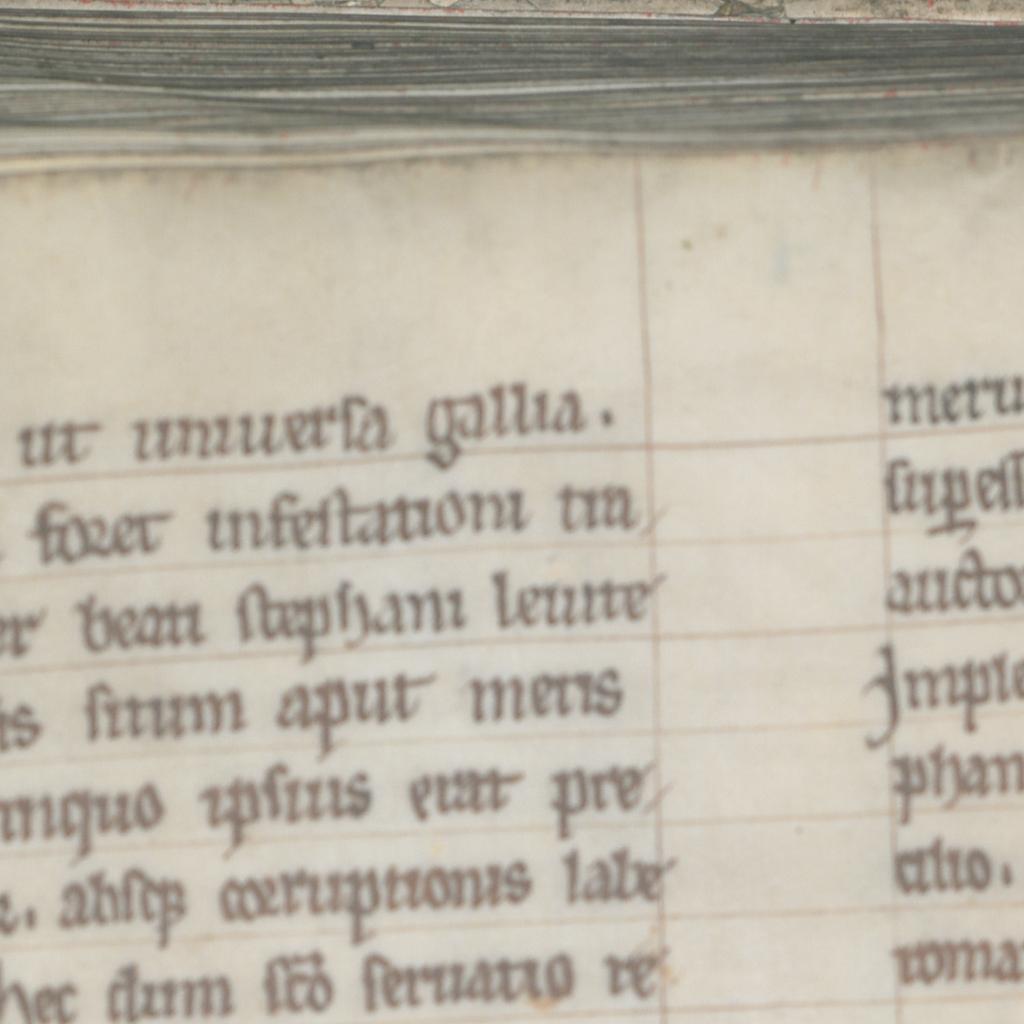 ut uniuersa gallia.
foret infestationi tra
er beati stephani leuite
is situm aput metis
inquo ipsius erat pre
absqꝫ corruptionis labe
hec dum sc̄o seruatio re
meru
supest
aucto
Imple
phan
cilio.
roma